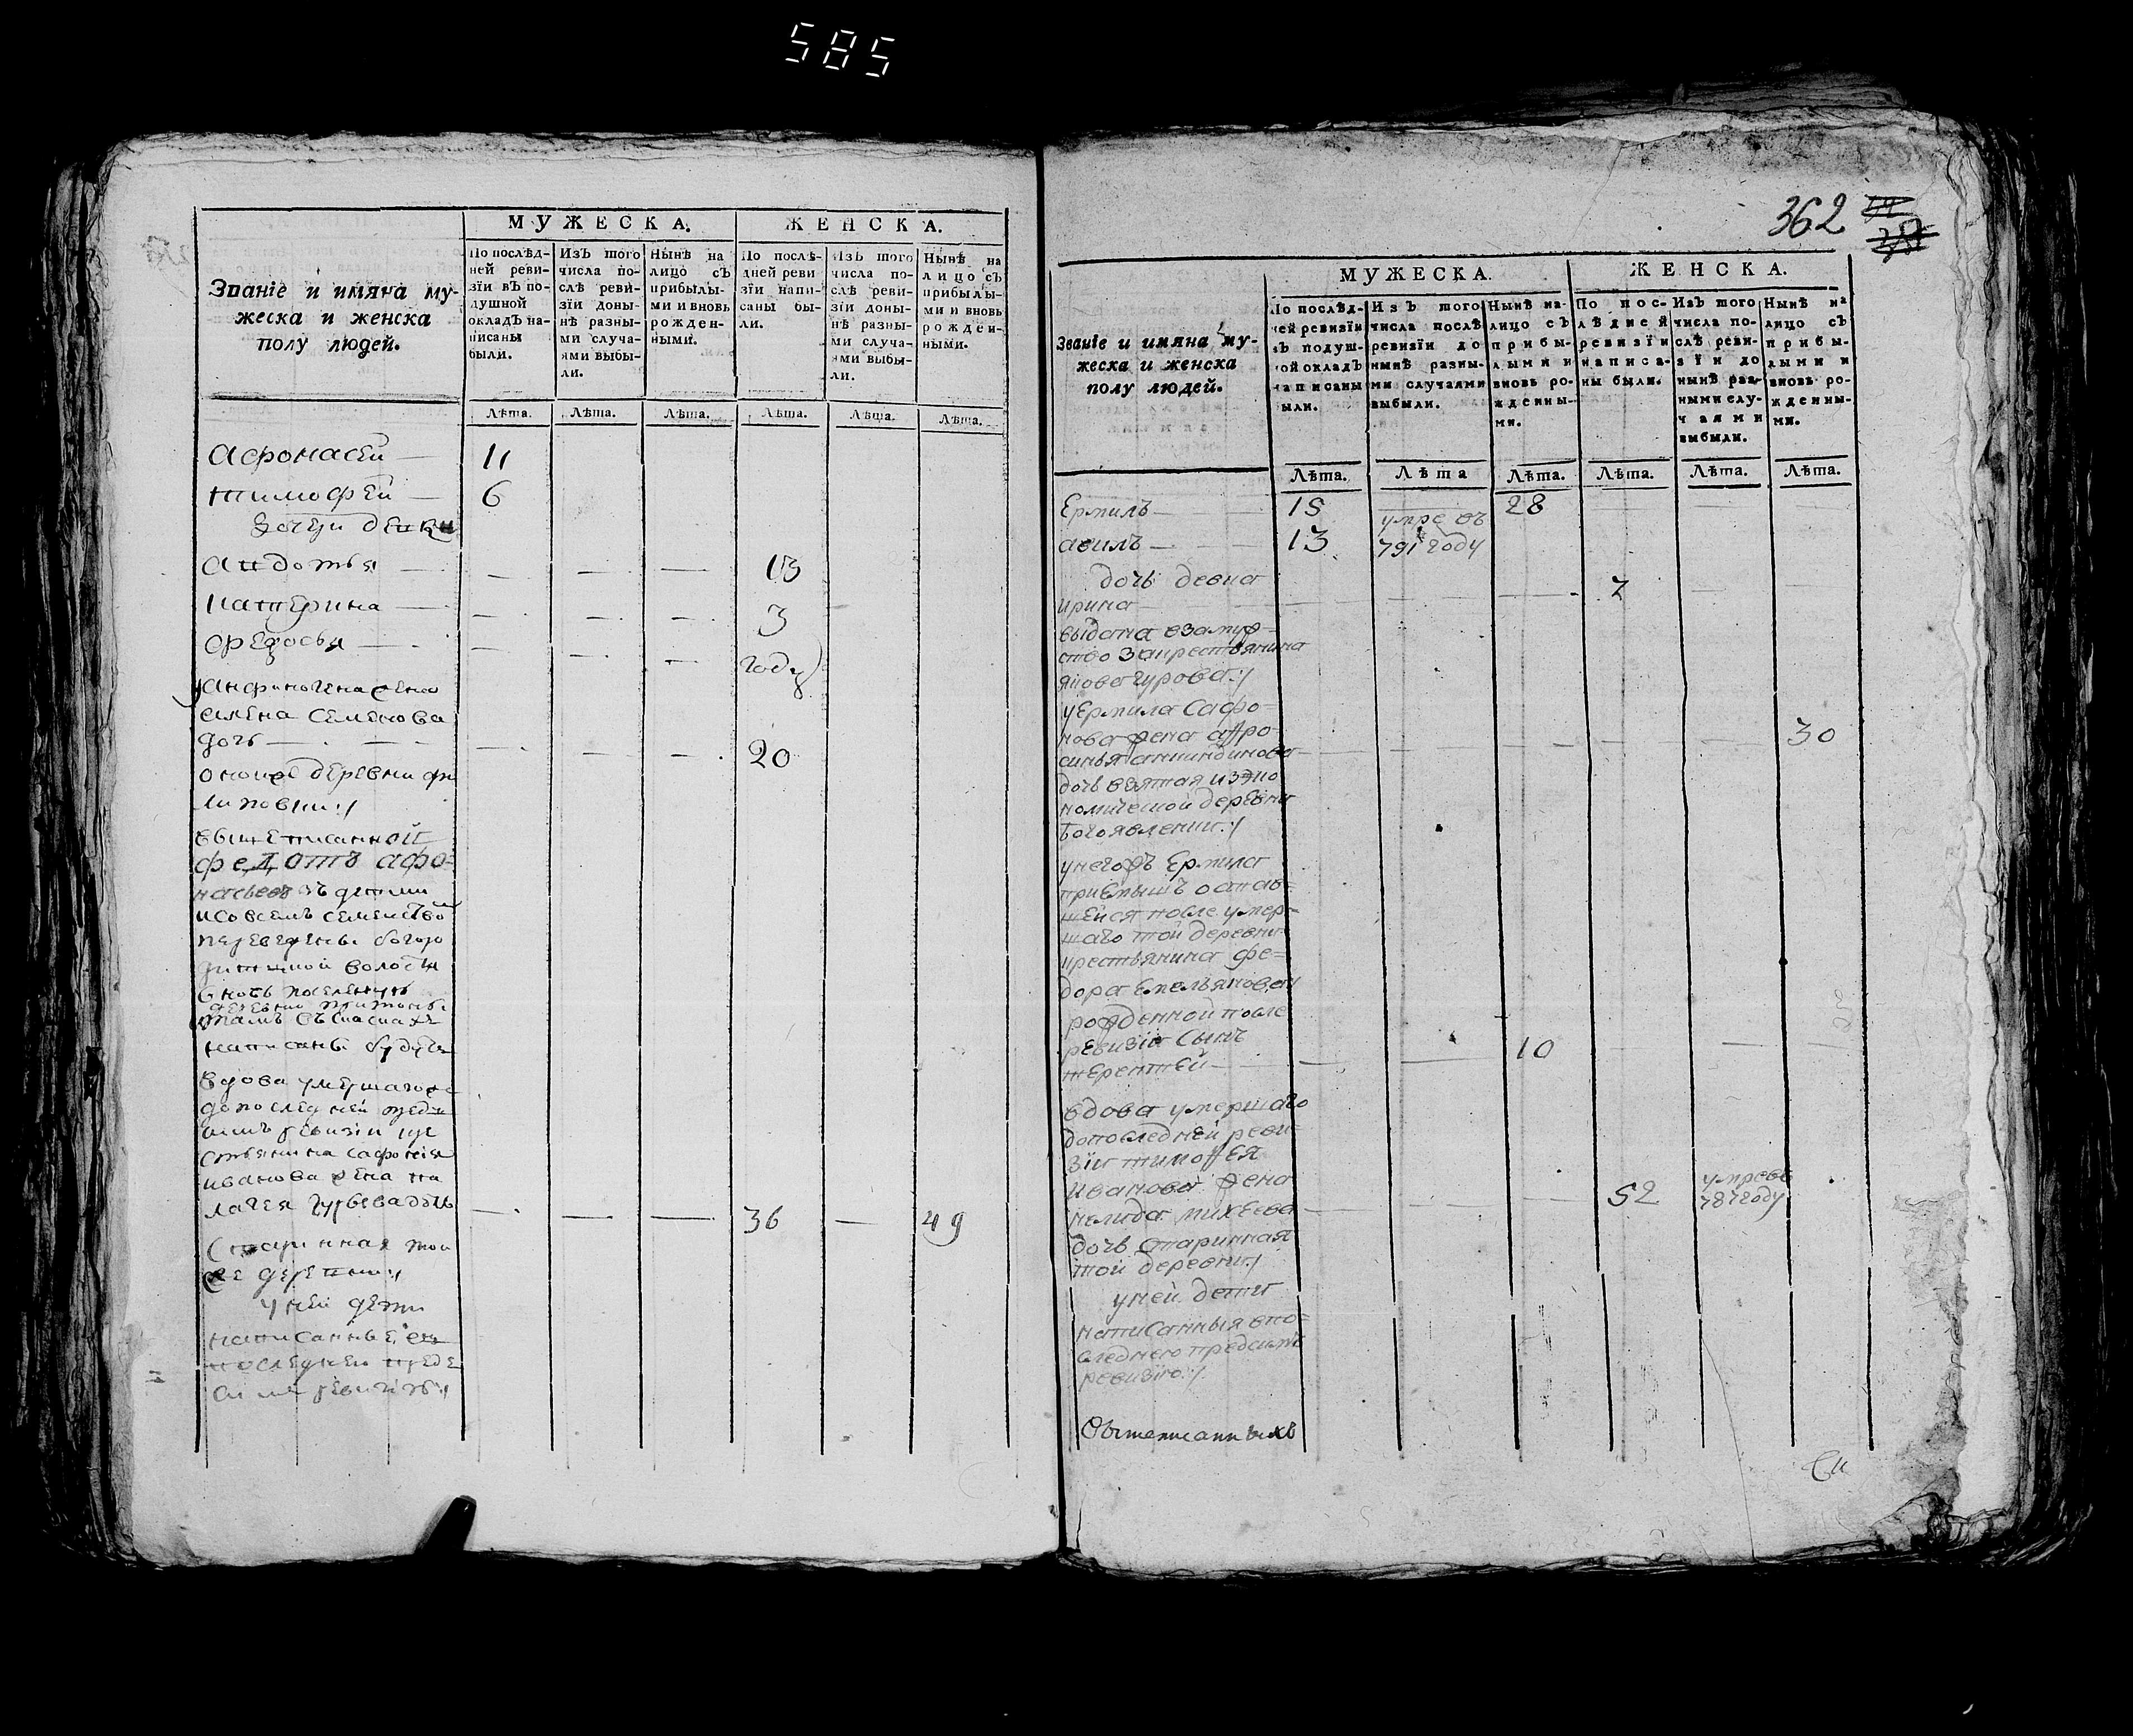 585
МУЖЕСКА.
ЖЕНСКА.
Званіе и имяна му-
жеска и женска
полу людей.
По послѣд-
ней реви-
зіи въ по-
душной
окладъ на-
писаны
были.
Изъ того
числа по-
слѣ реви-
зіи доны-
нѣ разны-
ми случа-
ями выбы-
ли.
Нынѣ на
лицо съ
прибылы-
ми и вновь
рожден-
ными.
По послѣ-
дней реви
зіи напи-
саны бы-
ли.
Изъ того
числа по-
слѣ реви-
зіи доны-
нѣ разны-
ми случа-
ями выбы-
ли.
Нынѣ на
лицо съ
прибылы-
ми и вновь
рожден-
ными.
Лѣта. Лѣта. Лѣта. Лѣта. Лѣта. Лѣта.
афонасей 11
тимофей 6
дочери девки
авдотья 13
катерина 3
федосья году
анфиногена жена
елена семенова
дочь 20
оной же деревни фи
липовки :/
вышеписанной
федотъ афо=
насьевъ зъ детми
исовсемъ семействомъ
переведены богоро
дитцкой волости
вновь поселенную
деревню
тамъ въ сказкахъ
написаны будутъ
вдова умершагоже
допоследней преди
симъ ревизіи кре
стьянина сафонія
иванова жена па
лагея гурьева дочь 36 49
старинная той
же деревни :/
у ней дети
написанные въ
последнею пред
симъ ревизію :/
362
МУЖЕСКА.
ЖЕНСКА.
Званіе и имяна му-
жеска и женска
полу людей.
По послѣд-
ней ревизіи
въ подуш-
ной окладъ
написаны
были.
Изъ того
числа послѣ
ревизіи до
нынѣ разны-
ми случаями
выбыли.
Нынѣ на-
лицо съ
прибы-
лыми и
вновь ро-
жденны-
ми.
По пос-
лѣдней
ревизіи
написа-
ны были.
Изъ того
числа по-
слѣ реви-
зіи до
нынѣ раз-
ными слу-
чаями
выбыли.
Нынѣ на
лицо съ
прибы-
лыми и
вновь ро-
жденны-
ми.
Лѣта. Лѣта Лѣта. Лѣта. Лѣта. Лѣта.
Ермилъ 15 28
авилъ 13 умре въ 791 году
дочь девка
ирина 7
выдана взамуж=
ство закрестьянина
якова гурова :/
уермила сафо=
нова жена афро
синья
дочь взятая изэко
номической деревни
Богоявлении :/
унегожъ Ермила
приемышъ остав=
шейся после умер=
шаго той деревни
крестьянина фе=
дора емельянова
рожденной после
ревизіи сынъ
терентей 10
вдова умершаго
допоследней реви=
зіи тимофея
иванова жена
михеева 52 умре въ 787 году
дочь старинная
той деревни :/
уней дети
написанныя впо=
следнею предсимъ
ревизію :/
Вышеписанныхъ